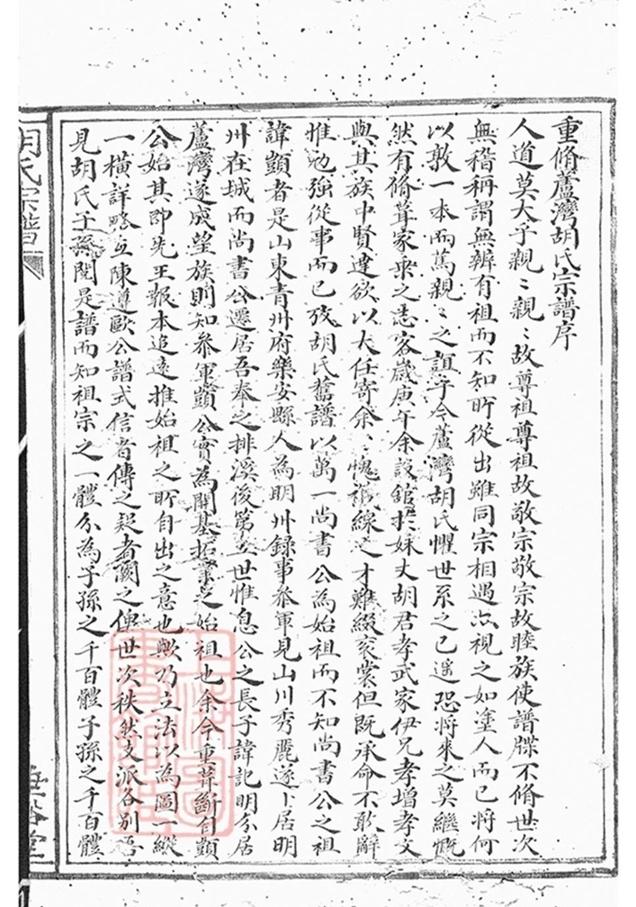 重脩蘆灣胡氏宗譜序
人道莫大乎親〻親〻故尊祖尊祖故敬宗敬宗故睦族使譜牒不脩世次
無稽稱謂無辨有祖而不知所從出雖同宗相遇亦視之如塗人而已將何
以敦一本而篤親〻之誼乎今蘆灣胡氏懼世系之已遥恐將來之莫繼慨
然有脩葺家乘之志客歲庚午余設舘於妹丈胡君孝武家伊兄孝增孝文
與其族中賢達欲以大任寄余〻愧襪線之才難綴衮裳但既承命不敢辭
惟勉強從事而已攷胡氏舊譜以萬一尚書公為始祖而不知尚書公之祖
諱顗者是山東青州府樂安縣人為明州録事叅軍見山川秀麗遂卜居明
州在城而尚書公遷居吾奉之排溪後第五世惟息公之長子諱記明分居
蘆灣遂成望族則知叅軍顗公實為開基拓業之始祖也余今重葺斷自顗
公始其即先王報本追遠推始祖之所自出之意也歟乃立法以為圖一縱
一橫詳略互陳遵歐公譜式信者傳之疑者闕之俾世次秩然支派各別
見胡氏子孫閱是譜而知祖宗之一體分為子孫之千百體子孫之千百體
胡氏宗譜